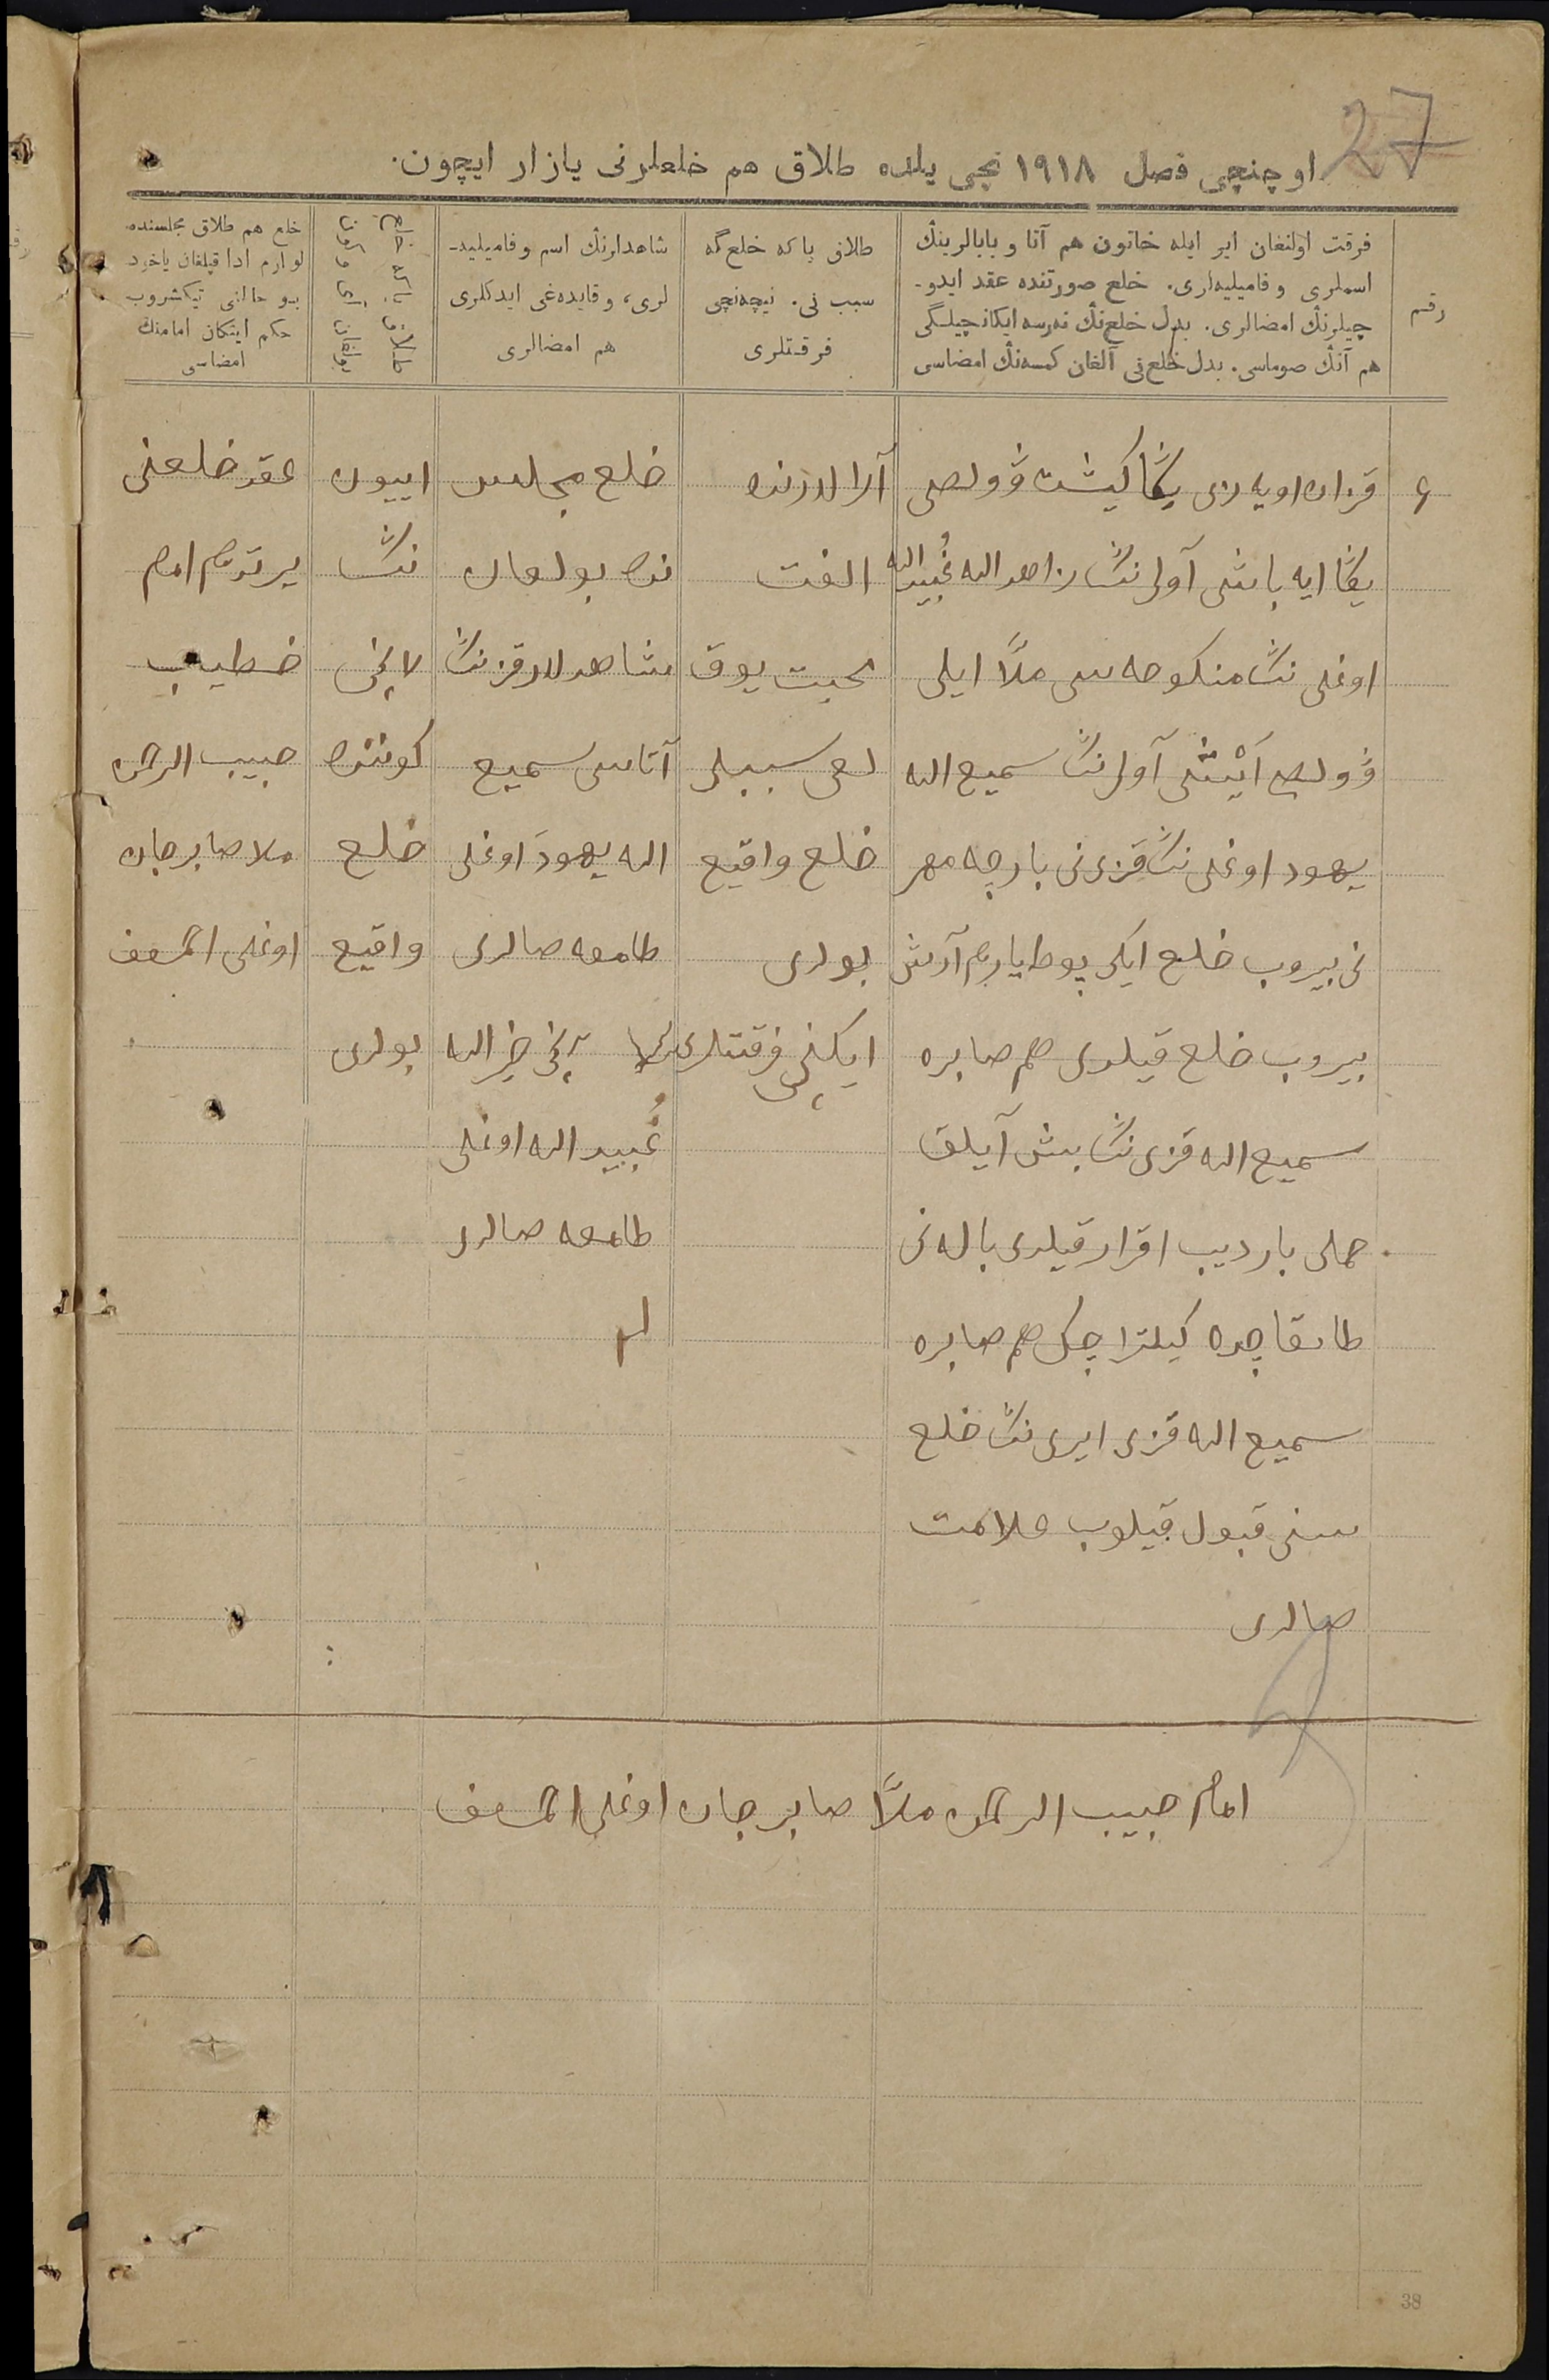 27
اوچنچی فصل ۱۹۱۸ نچی یلده طلاق هم خلعلرنی یازار ایچون.
رقم
فرقت اولنغان ایر ایله خاتون هم آتا و بابالرینڭ
اسملری و فامیلیه‌لری. خلع صورتنده عقد ایدو-
چیلرنڭ امضالری. بدل خلع‌نڭ نه‌رسه ایکانچیلگی
هم آنڭ صوماسی. بدل خلع‌نی آلغان کمسه‌نڭ امضاسی
طلاق یا که خلع گه
سبب نی. نیچه‌نچی
فرقتلری
شاهدلرنڭ اسم و فامیلیه-
لری، و قایده‌غی ایدکلری
هم امضالری
خلع هم طلاق مجلسنده
لوازم ادا قیلغان یاخود
بو حالنی تیکشروب
حکم ایتکان امامنڭ
امضاسی
۴
قزان اویه‌زی یڭا کیشت ڤولصی
یڭا ایه باشی آولی‌نڭ زاهد الله عُبید الله
اوغلی نڭ منکوحه سی ملّا ایلی
ڤولصی آیشی آولی نڭ سمیع الله
یهود اوغلی نڭ قزی‌نی بارچه مهر
نی بیروب خلع ایکی پوط یارم آرش
بیروب خلع قیلدی هم صابره
سمیع الله قزی نڭ بیش آیلق
حملی بار دیب اقرار قیلدی باله نی
طابقاچده کیلتراچک هم صابره
سمیع الله قزی ایری نڭ خلع
سنی قبول قیلوب علامت
صالدی
آرالارنده
الفت
محبت یوق
لغی سببلی
خلع واقیع
بولدی
ایکنچی فرقتلری
خلع مجلس
نده بولغان
شاهدلار قزنڭ
آتاسی سمیع
الله یهود اوغلی
طامغه صالدی
۲نچی خیر الله
عُبید الله اوغلی
طامغه صالدی
اییون
نڭ
۷ نچی
کوننده
خلع
واقیع
بولدی
عقد خلعنی
یرتدم امام
خطیب
حبیب الرحمن
ملا صابرجان
اوغلی
امام حبیب الرحمن ملّا صابرجان اوغلی
38